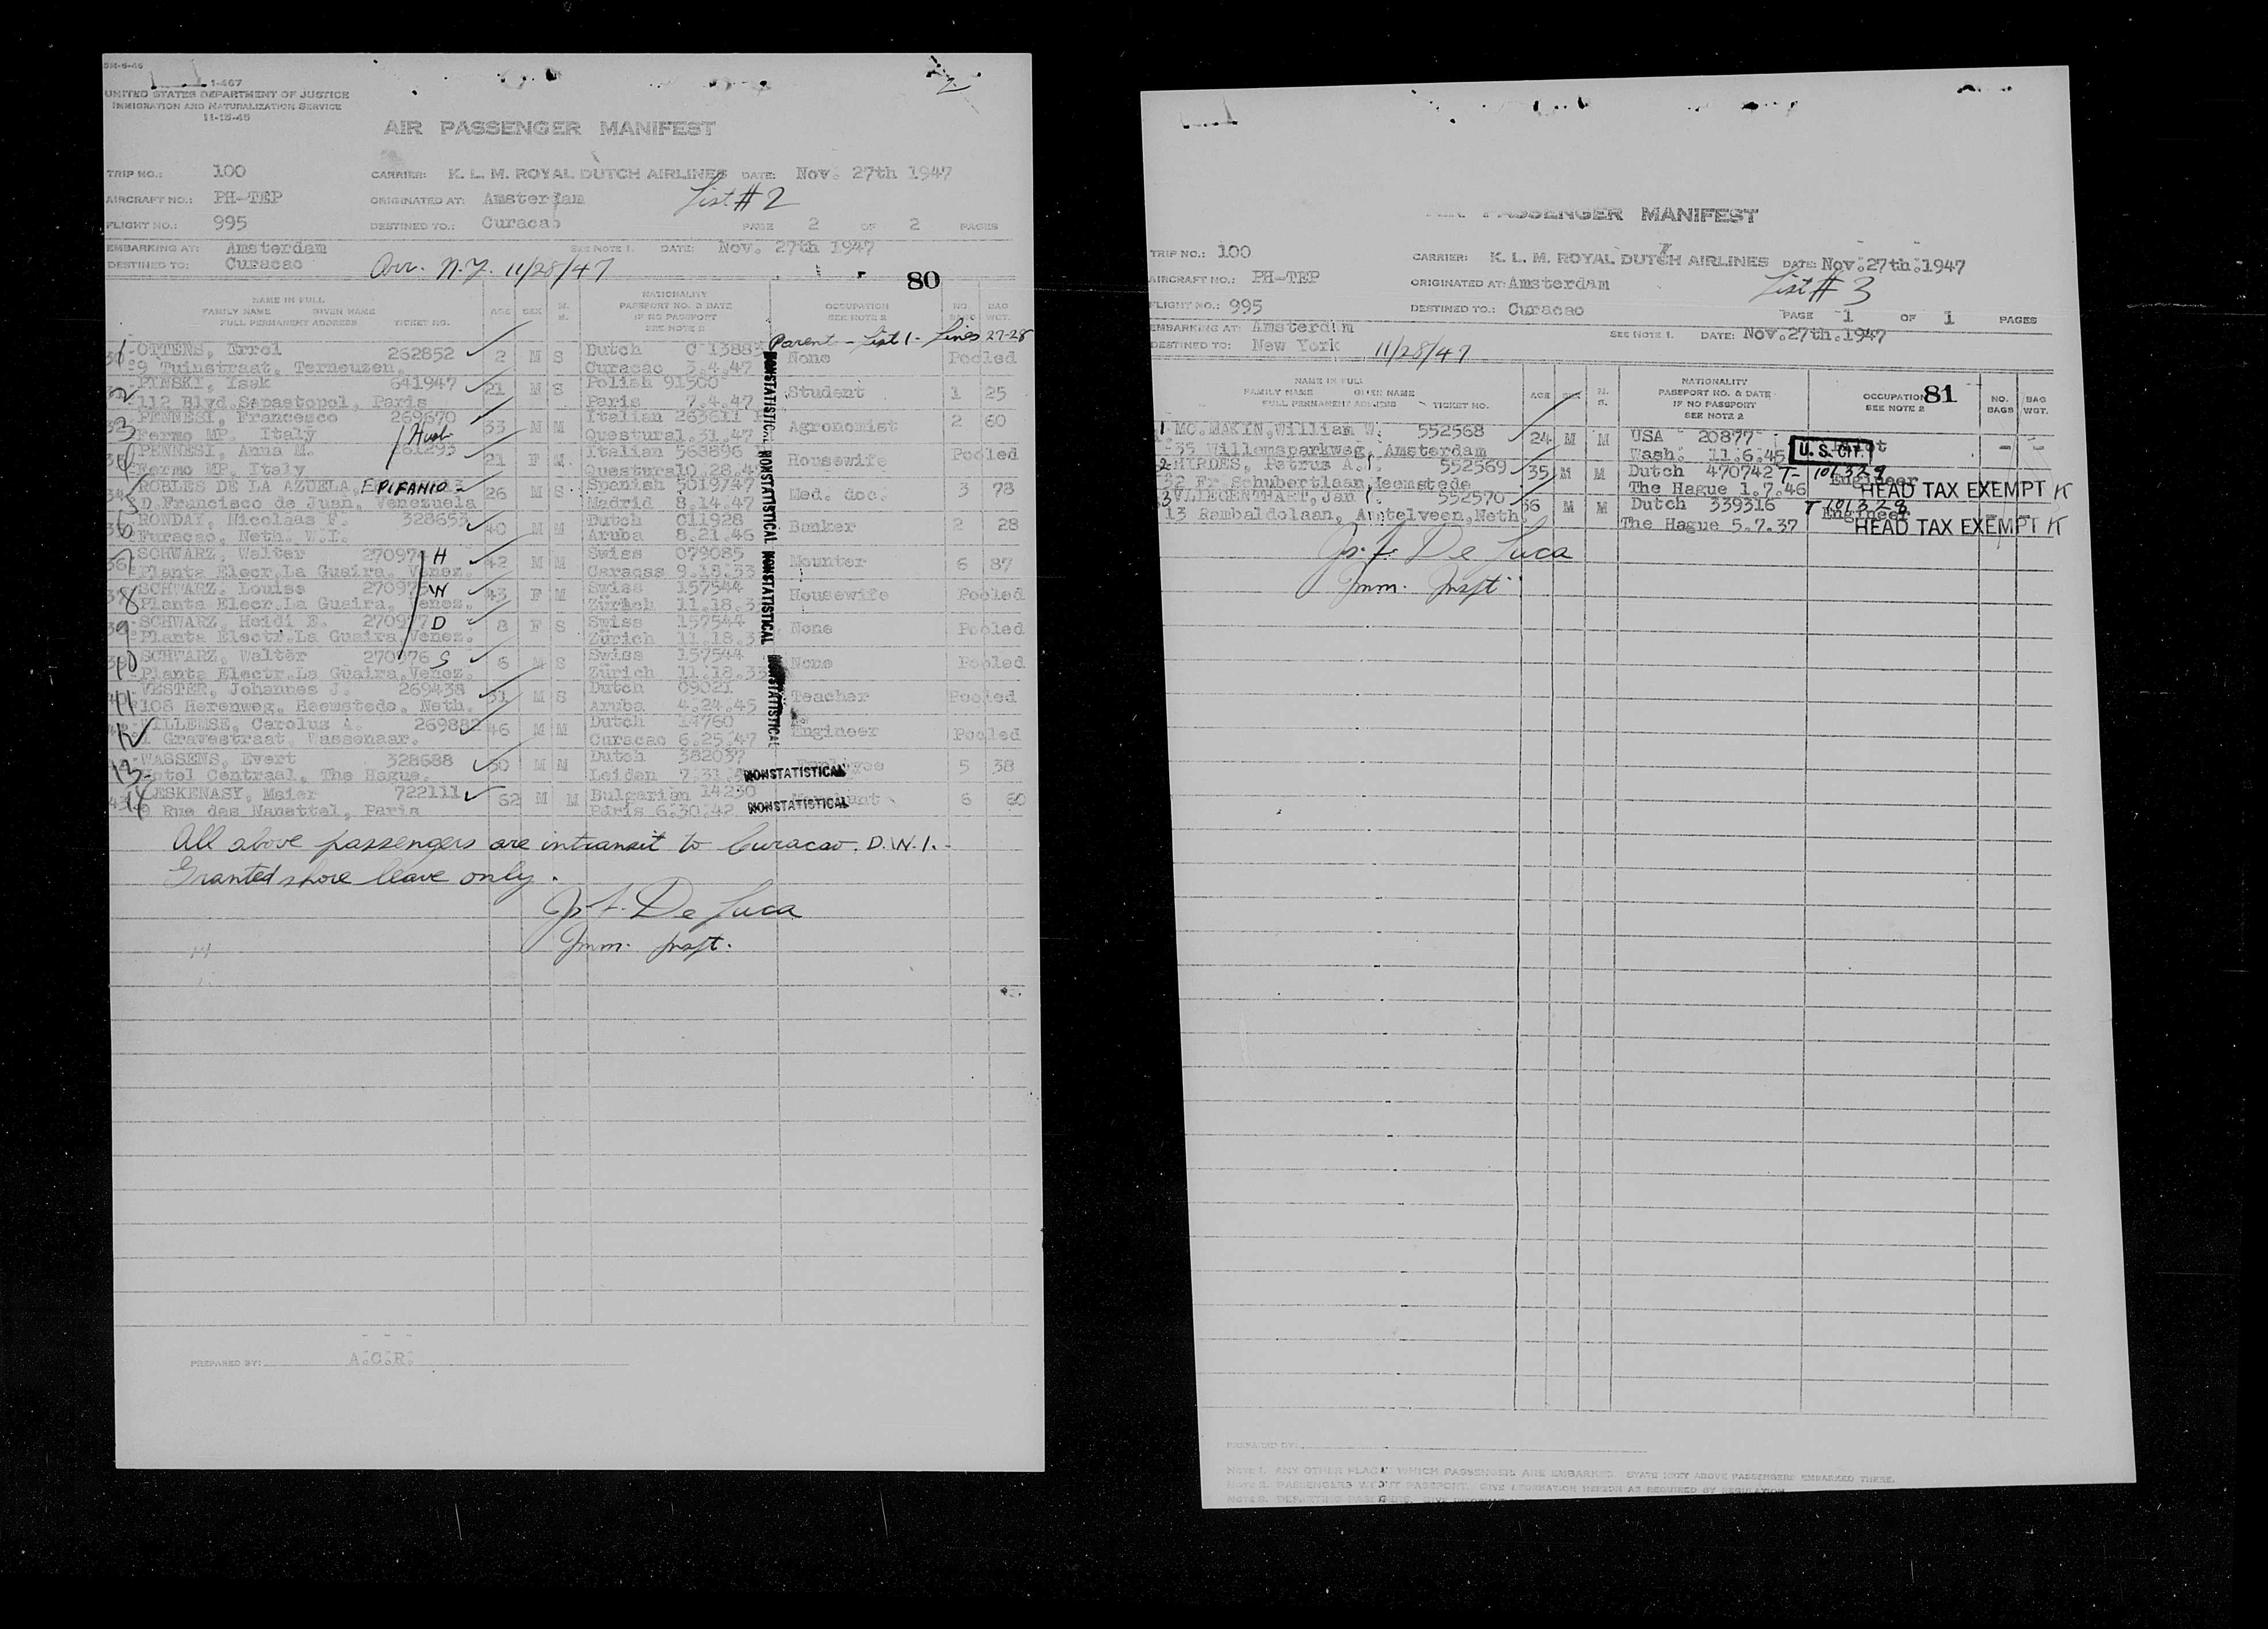 1-467
UNITED STATES DEPARTMENT OF JUSTICE
IMMIGRATION AND NATURALIZATION SERVICE
11-15-45
AIR PASSENGER MANIFEST
TRIP NO.: 100 CARRIER: K. L. M. ROYAL DUTCH AIRLINES DATE: Nov. 27th 1947
AIRCRAFT NO.: PH-TEP ORIGINATED AT: Amsterdam List #2
FLIGHT NO.: 995 DESTINED TO.: Curacao PAGE 2 OF 2 PAGES
EMBARKING AT: Amsterdam SEE NOTE 1. DATE: Nov. 27th 1947
DESTINED TO: Curacao Arr. N.Y. 11/28/47
80
NAME IN FULL
FAMILY NAME GIVEN NAME
FULL PERMANENT ADDRESS TICKET NO.
AGE SEX
NATIONALITY
PASSPORT NO. & DATE
IF NO PASSPORT
SEE NOTE 2
OCCUPATION
SEE NOTE 2
NO. BAG
WGT.
Parent - List 1 - Lines 27-28
1 OTTENS, Errol 262852 2 M S Dutch C 1388 None Pooled
9 Tuinstraat, Terneuzen. Curacao 3.4.47
2 PINSKI, Ysek 641947 21 M S Polish 91500 Student 1 25
112 Blvd.Sepastopol, Paris Paris 7.4.47
3 PENNESI, Francesco 269670 33 M M Italian 263611 Agronomist 2 60
Fermo MP. Italy Husb Questura1.31.47
PENNESI, Anna M. 21 F M Italian 568896 Housewife Pooled
Fermo MP. Italy Questura10.28.4
ROBLES DE LA AZUELA, EPIFANIO 26 M S Spanish 5019747 Med. doc. 3 78
D.Francisco de Juan, Venezuela Madrid 8.14.47
6 RONDAY, Nicolaas F. 328652 40 M M Dutch C11928 Banker 2 28
Curacao, Neth. W.I. Aruba 8.21.46
7 SCHWARZ, Walter 27097 H 42 M M Swiss 079085 Mounter 6 87
Planta Elecr.La Guaira, Venez. Caracas 9.18.33
8 SCHWARZ, Louise 270975 W 43 F M Swiss 157544 Housewife Pooled
Planta Elecr.La Guaira, Venez. Zürich 11.18.3
9 SCHWARZ, Heidi E. 270977 D 8 F S Swiss 157544 None Pooled
Planta Electr.La Guaira,Venez. Zürich 11.18.3
10 SCHWARZ, Walter 270976 S 6 M S Swiss 157544 None Pooled
Planta Electr.La Guaira,Venez. Zürich 11.18.33
11 VESTER, Johannes J. 269438 31 M S Dutch 09021 Teacher Pooled
108 Herenweg, Heemstede, Neth. Aruba 4.24.45
12 WILLEMSE, Carolus A. 269882 46 M M Dutch 14760 Engineer Pooled
Gravestraat, Wassenaar. Curacao 6.25.47
13 WASSENS, Evert 328688 50 M M Dutch 382037 5 38
Hotel Centraal, The Hague. Leiden 7.31. NONSTATISTICAL
14 ESKENASY, Meier 722111 62 M M Bulgarian 14230 Merchant 6 60
9 Rue des Manettel, Paris Paris 6.30.42 NONSTATISTICAL
NONSTATISTICAL NONSTATISTICAL NONSTATISTICAL NONSTATISTICAL
All above passengers are intransit to Curacao. D.W.I.
Granted shore leave only.
De Luca
Imm. Inspt.
PREPARED BY: A.C.R.
AIR PASSENGER MANIFEST
TRIP NO.: 100 CARRIER: K. L. M. ROYAL DUTCH AIRLINES DATE: Nov.27th.1947
AIRCRAFT NO.: PH-TEP ORIGINATED AT: Amsterdam List #3
FLIGHT NO.: 995 DESTINED TO.: Curacao PAGE 1 OF 1 PAGES
EMBARKING AT: Amsterdam SEE NOTE 1. DATE: Nov.27th.1947
DESTINED TO: New York 11/28/47
NAME IN FULL
FAMILY NAME GIVEN NAME
FULL PERMANENT ADDRESS TICKET NO.
AGE
NATIONALITY
PASSPORT NO. & DATE
IF NO PASSPORT
SEE NOTE 2
OCCUPATION 81
SEE NOTE 2
NO. BAGS
BAG WGT.
1 MC.MAKIN,William W. 552568 24 M M USA 20877
35 Willemsparkweg, Amsterdam Wash. 11.6.45 U. S. CIT
2 HIRDES, Petrus A. 552569 35 M M Dutch 470742 T- 101329 Engineer
32 Fr Schubertlaan,Heemstede The Hague 1.7.46 HEAD TAX EXEMPT K
3 VLIEGENTHART, Jan 552570 36 M M Dutch 339316 T 101328 Engineer
13 Rembaldolaan, Amstelveen,Neth The Hague 5.7.37 HEAD TAX EXEMPT K
De Luca
Imm. Inspt
PREPARED BY:
NOTE 1. ANY OTHER PLACE WHICH PASSENGERS ARE EMBARKED. STATE ABOVE PASSENGERS EMBARKED THERE.
NOTE 2. PASSENGERS WITHOUT PASSPORT. GIVE INFORMATION HEREON AS REQUIRED BY REGULATION